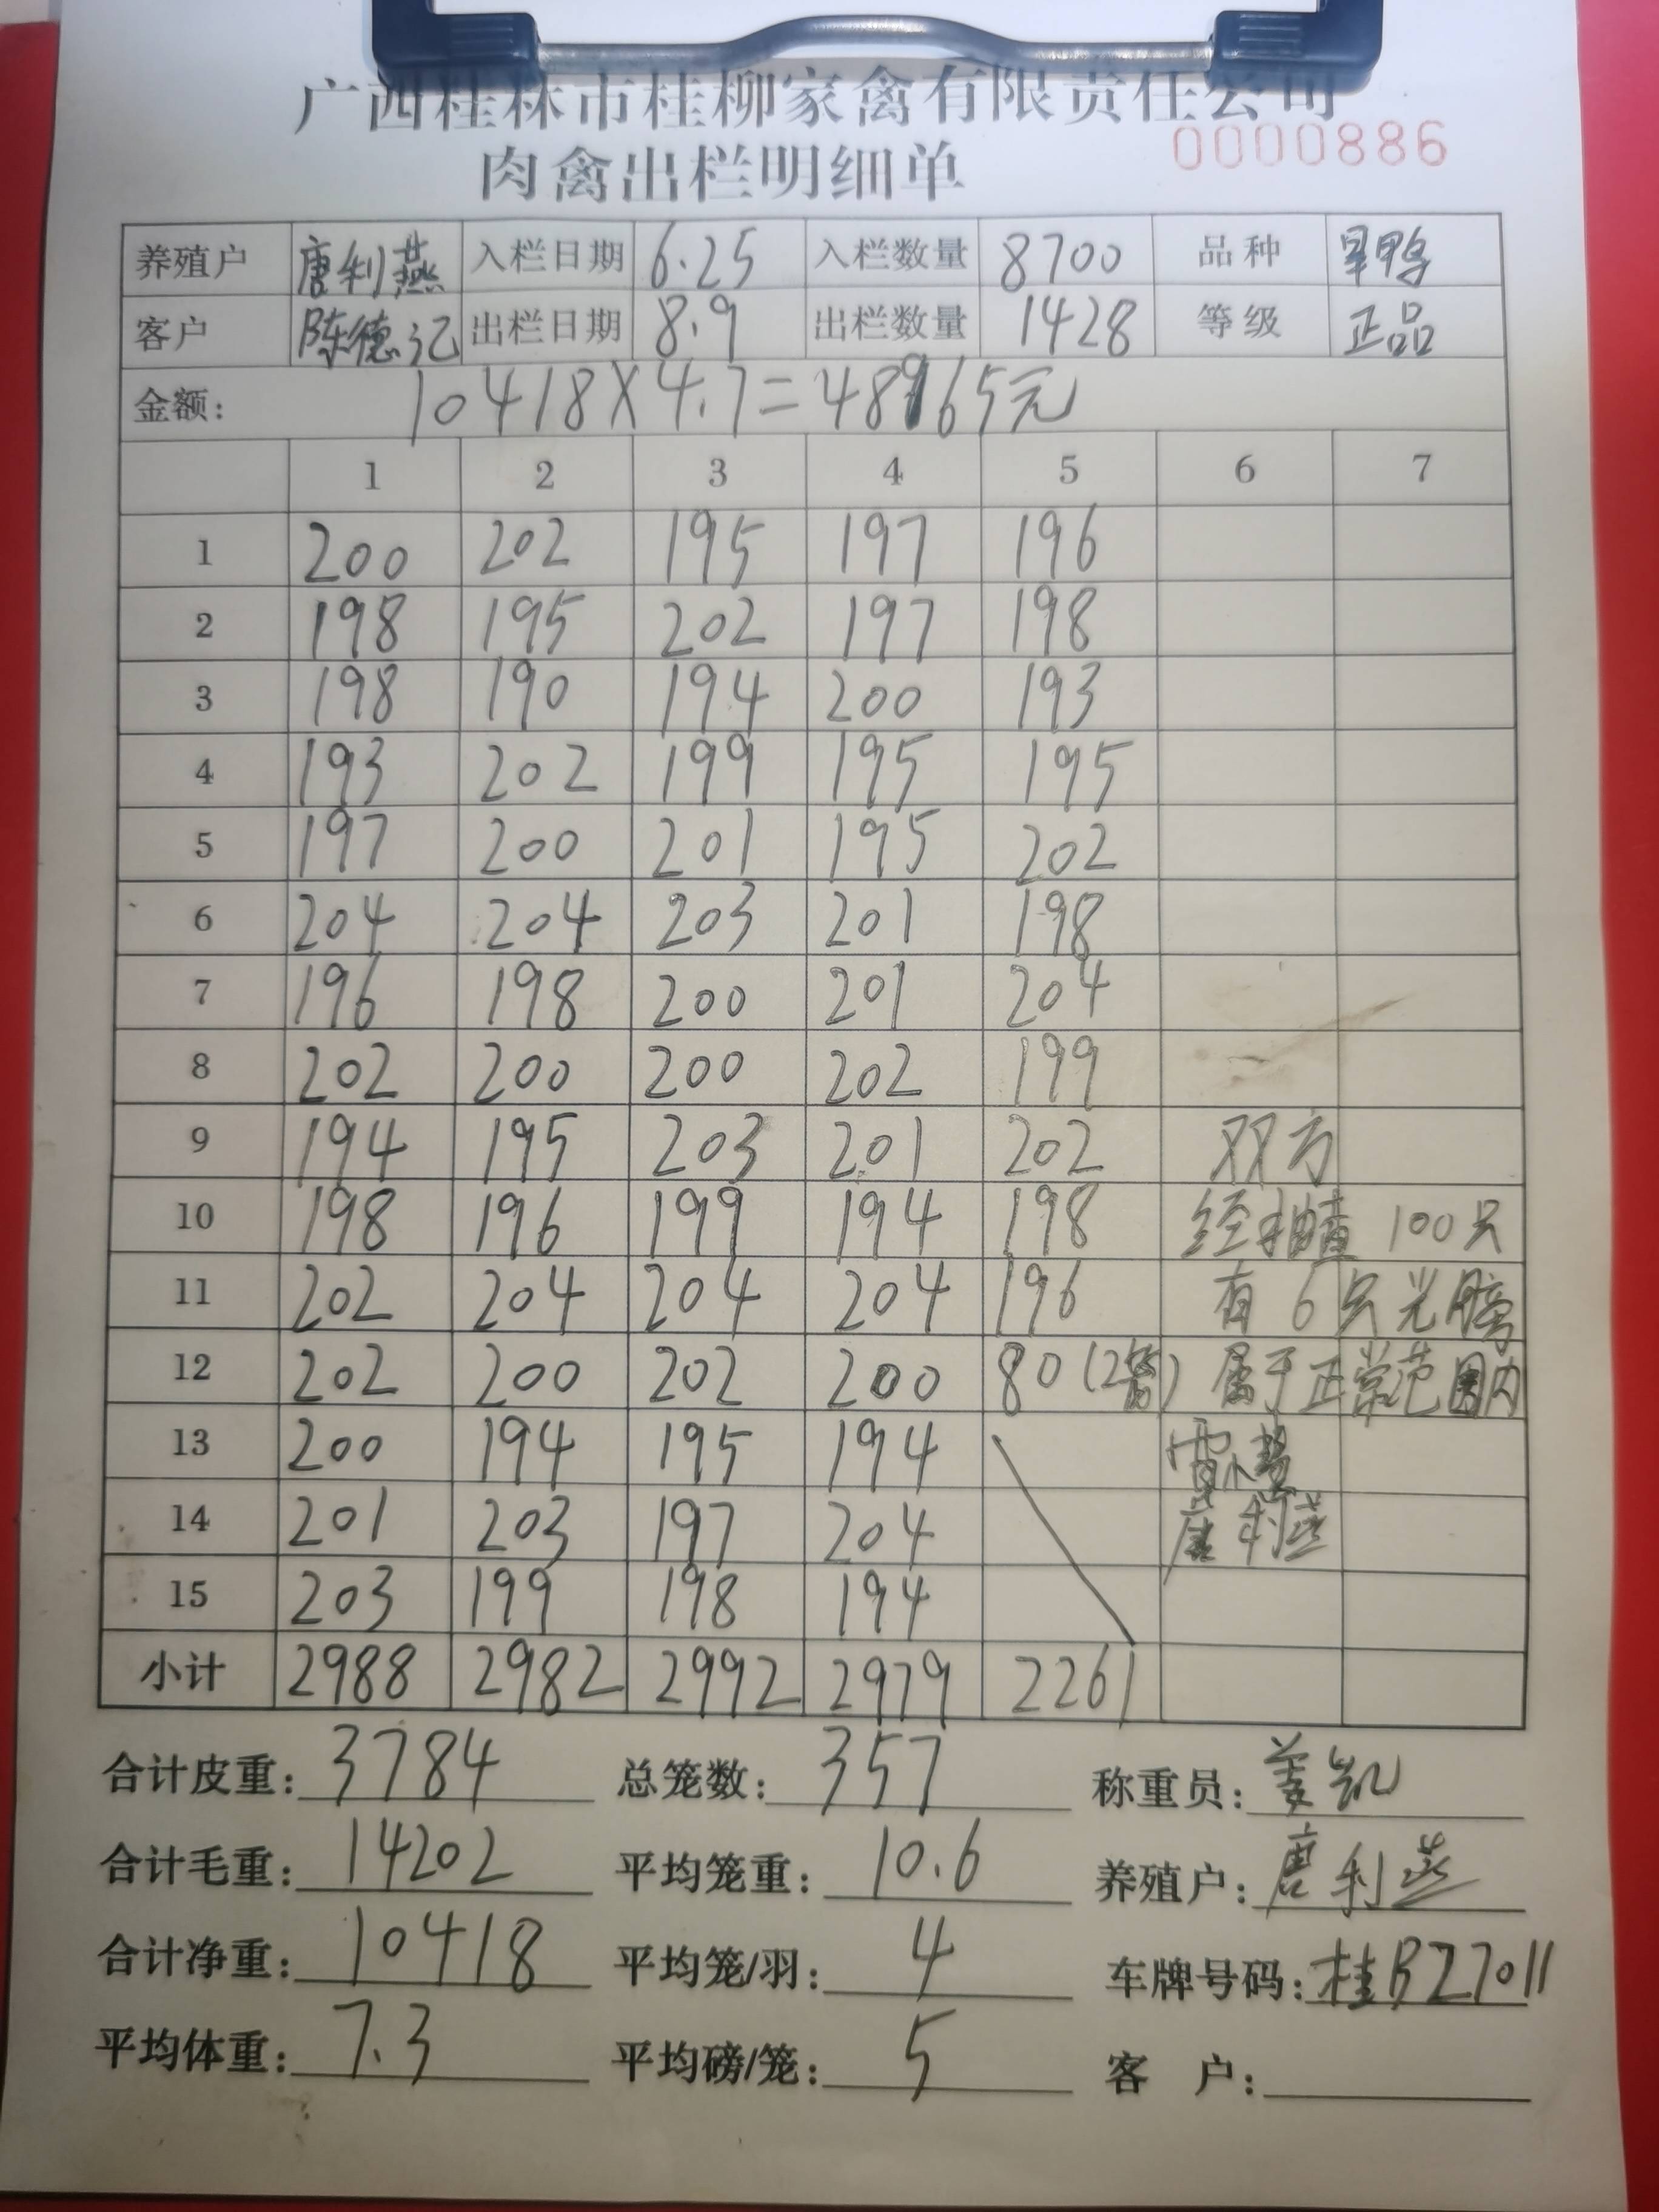 广西桂林市桂柳家禽有限责任公司
0000886
肉禽出栏明细单
养殖户 唐利燕 入栏日期 6.25 入栏数量 8700 品种 旱鸭
客户 陈德记 出栏日期 8.9 出栏数量 1428 等级 正品
金额: 10418X4.7=48965元
1 2 3 4 5 6 7
1 200 202 195 197 196
2 198 195 202 197 198
3 198 190 194 200 193
4 193 202 199 195 195
5 197 200 201 195 202
6 204 204 203 201 198
7 196 198 200 201 204
8 202 200 200 202 199
9 194 195 203 201 202 双方
10 198 196 199 194 198 经抽查 100只
11 202 204 204 204 196 有 6只光膀
12 202 200 202 200 80(2筐) 属于正常范围内
13 200 194 195 194
14 201 203 197 204 唐利燕
15 203 199 198 194
小计 2988 2982 2992 2979 2261
合计皮重: 3784 总笼数: 357 称重员: 姜凯
合计毛重: 14202 平均笼重: 10.6 养殖户: 唐利燕
合计净重: 10418 平均笼/羽: 4 车牌号码: 桂BZ7011
平均体重: 7.3 平均磅/笼: 5 客 户: